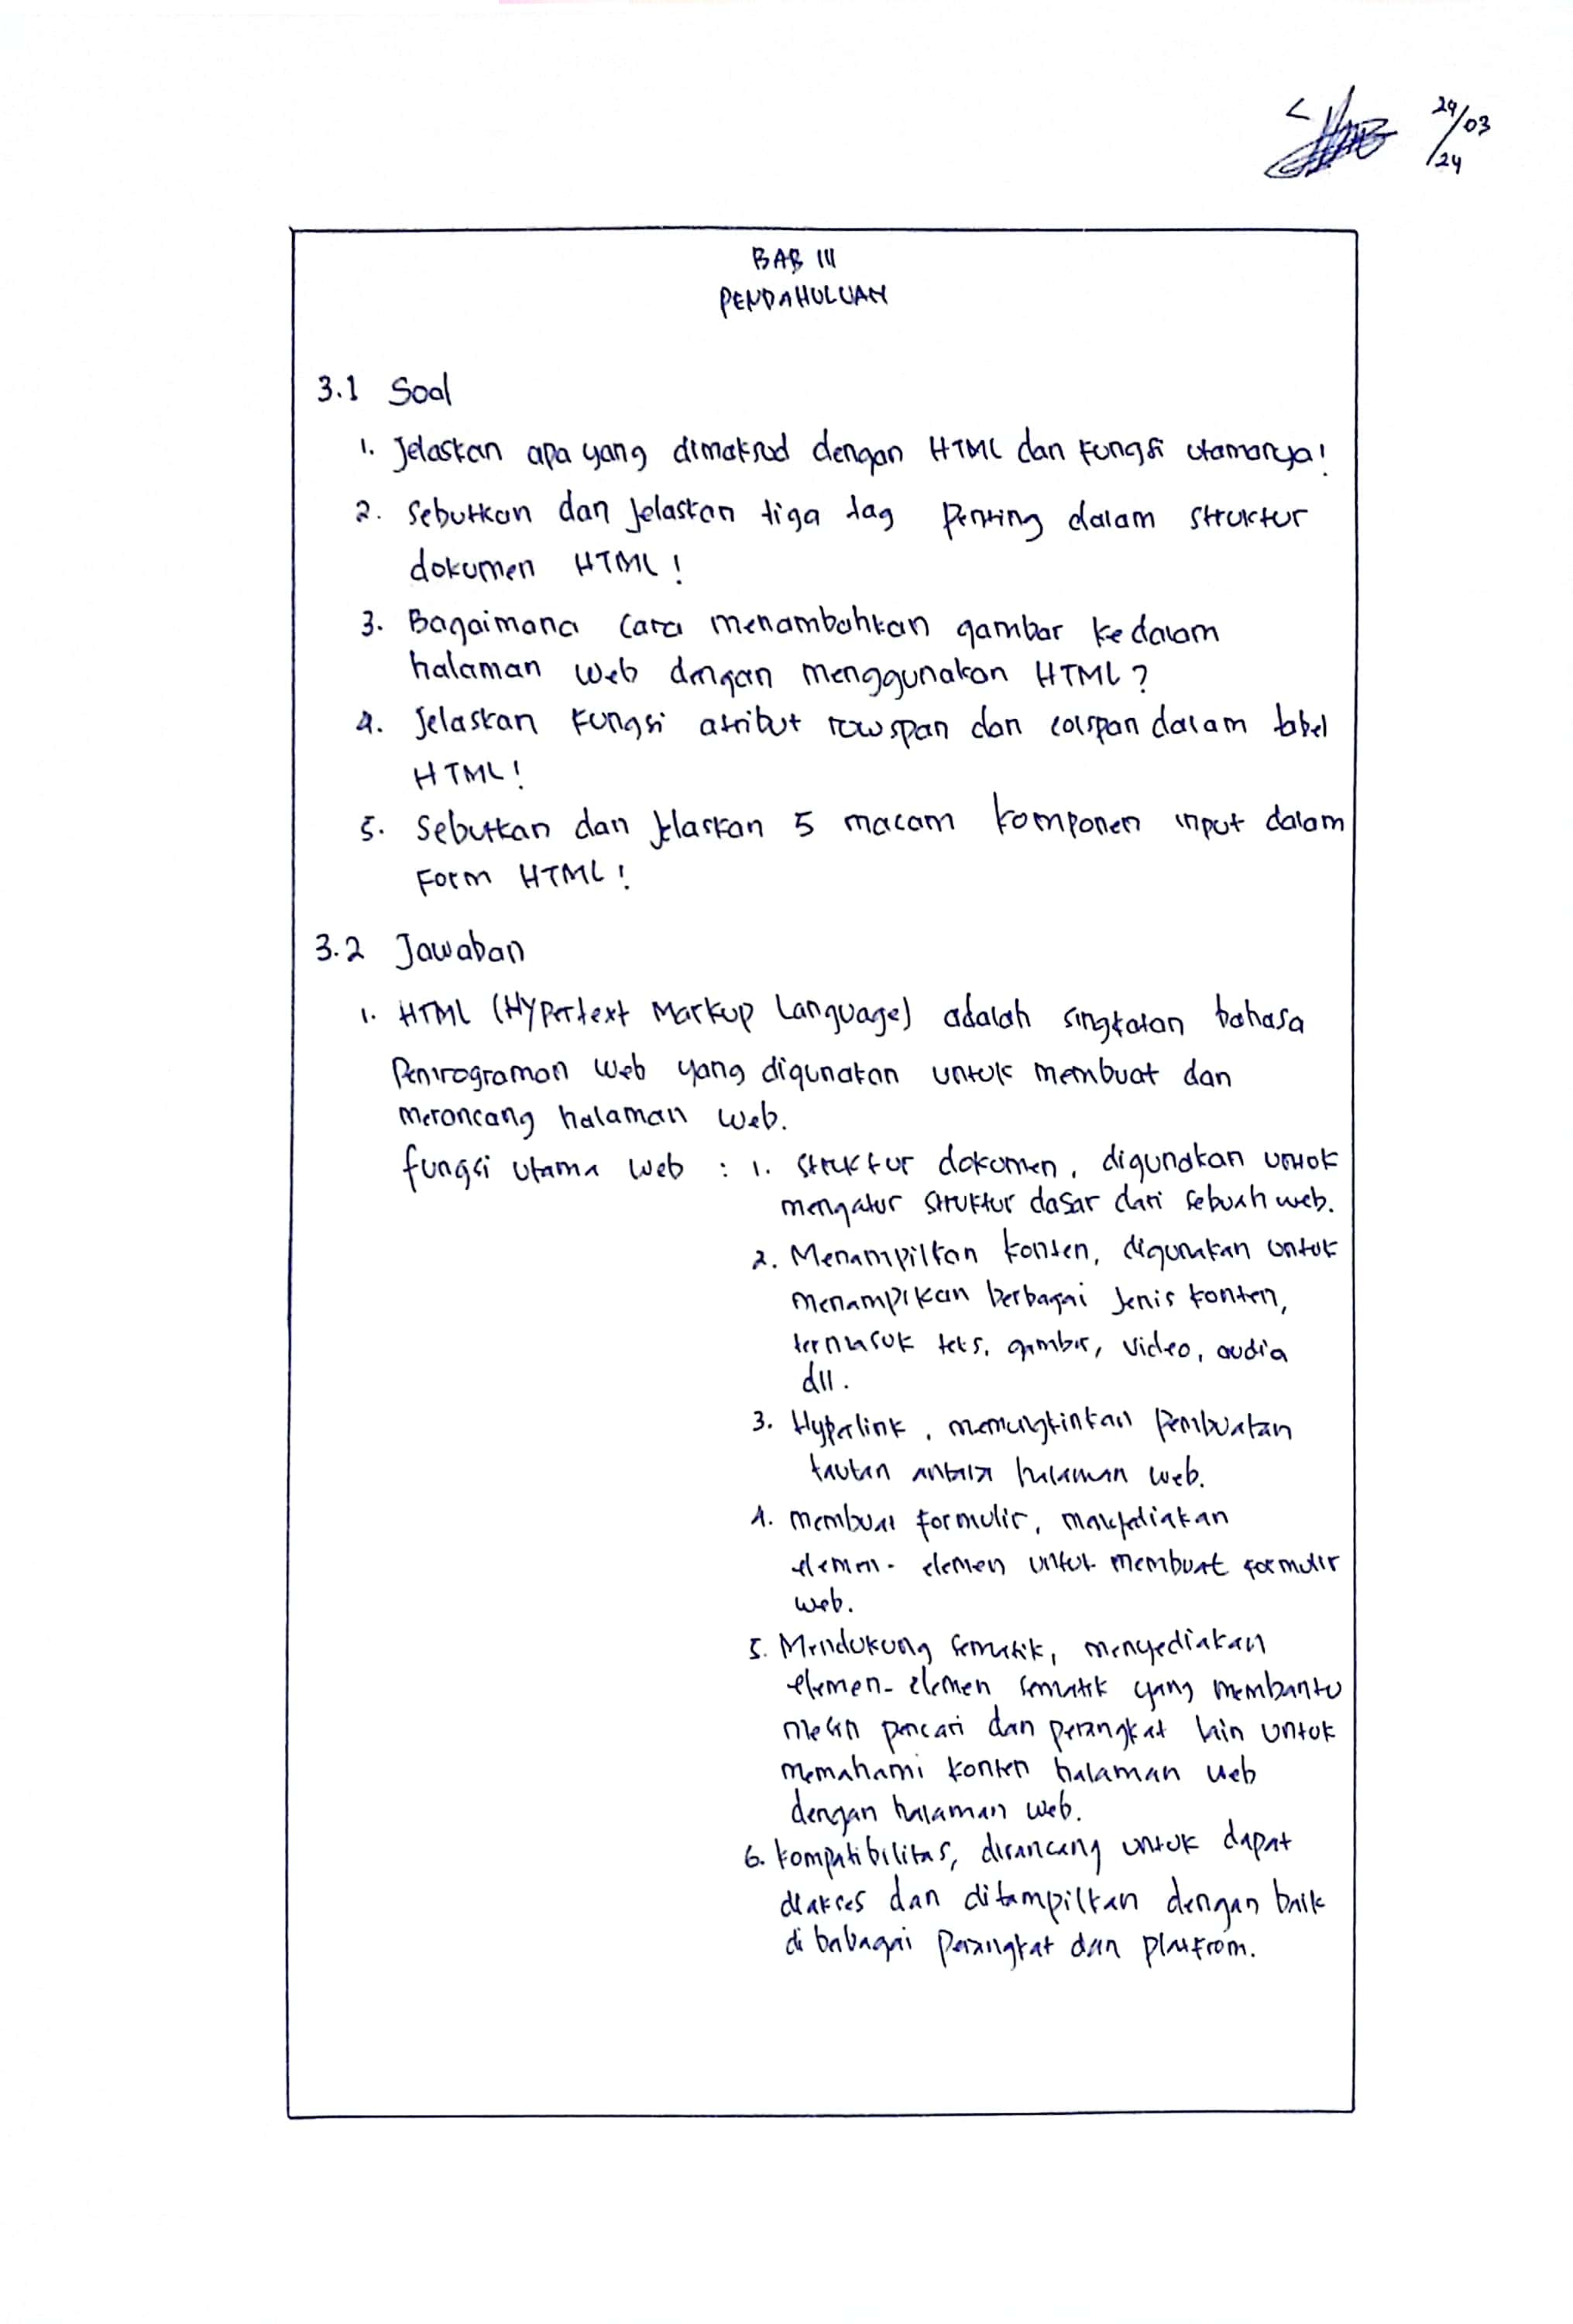 29/03
/24
BAB III
PENDAHULUAN
3.1 Soal
1. Jelaskan apa yang dimaksud dengan HTML dan fungsi utamanya!
2. Sebutkan dan Jelaskan tiga tag penting dalam struktur
dokumen HTML!
3. Bagaimana cara menambahkan gambar kedalam
halaman web dengan menggunakan HTML?
4. Jelaskan fungsi atribut rowspan dan colspan dalam tabel
HTML!
5. Sebutkan dan Jelaskan 5 macam komponen input dalam
Form HTML!
3.2 Jawaban
1. HTML (Hypertext Markup Language) adalah singkatan bahasa
Pemrograman web yang digunakan untuk membuat dan
merancang halaman web.
fungsi utama web : 1. Struktur dokumen, digunakan untuk
mengatur struktur dasar dari sebuah web.
2. Menampilkan konten, digunakan untuk
menampikan berbagai Jenis konten,
termasuk teks, gambar, video, audia
dll.
3. Hyperlink, memungkinkan Pembuatan
tautan antara halaman web.
4. membuat formulir,
elemen-elemen untuk membuat formulir
web.
5. Mendukung sematik, menyediakan
elemen-elemen sematik yang membantu
mesin pencari dan perangkat lain untuk
memahami konten halaman web
dengan halaman web.
6. kompatibilitas, dirancang untuk dapat
diakses dan ditampilkan dengan baik
di babagai Perangkat dan platfrom.